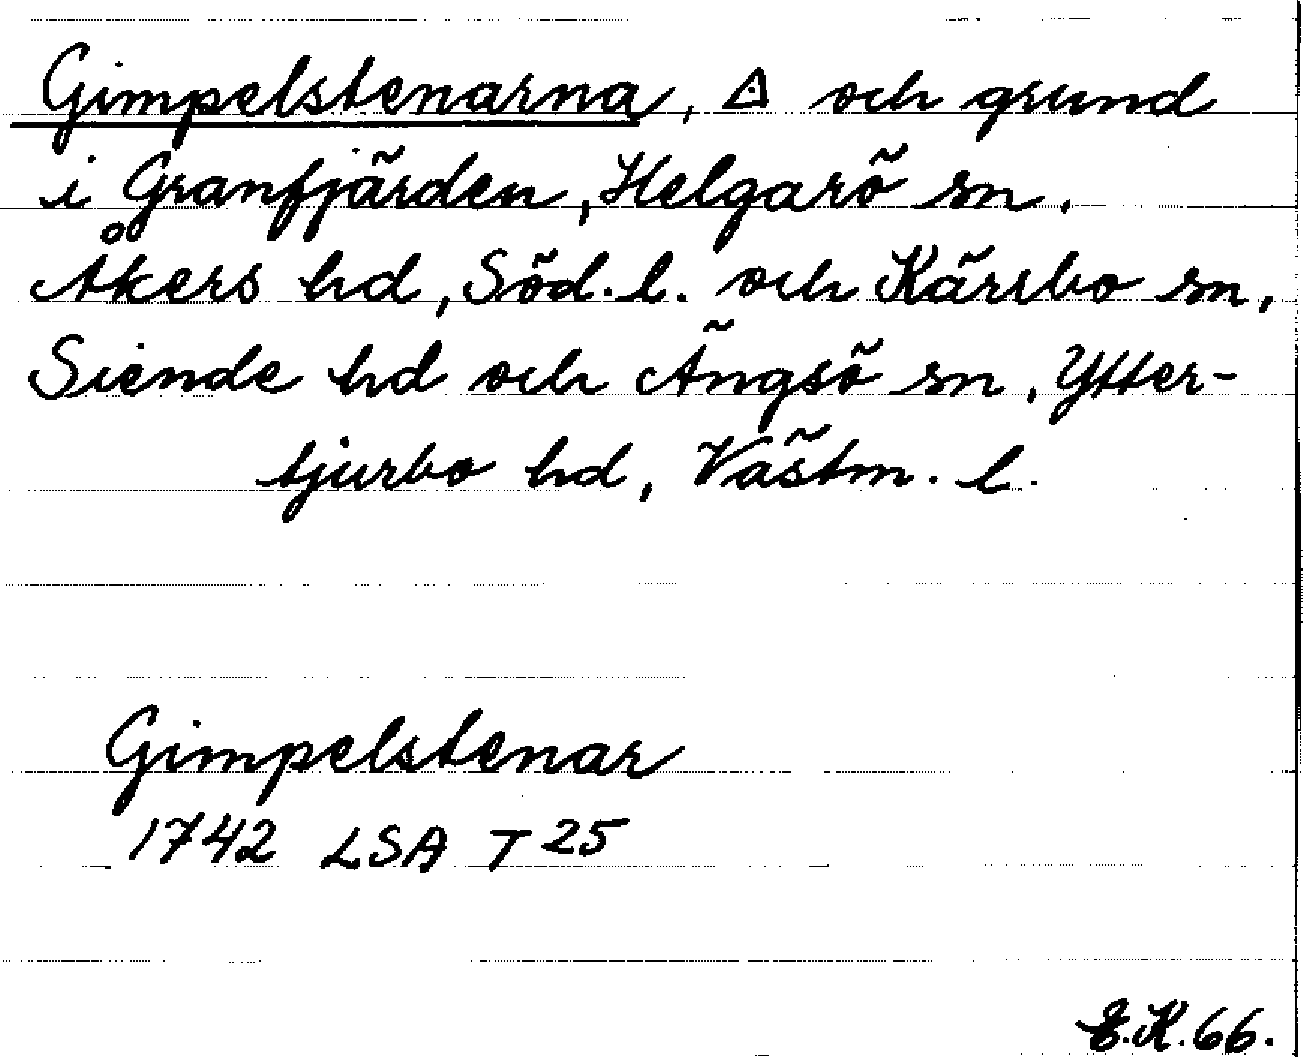 Gimpelstenarna, △ och grund
i Granfjärden, Helgarö sn,
Åkers hd, Söd. l. och Kärrbo sn,
Siende hd och Ängsö sn, Ytter-
tjurbo hd, Västm. l.
Gimpelstenar
1742 LSA T 25
E.K. 66.